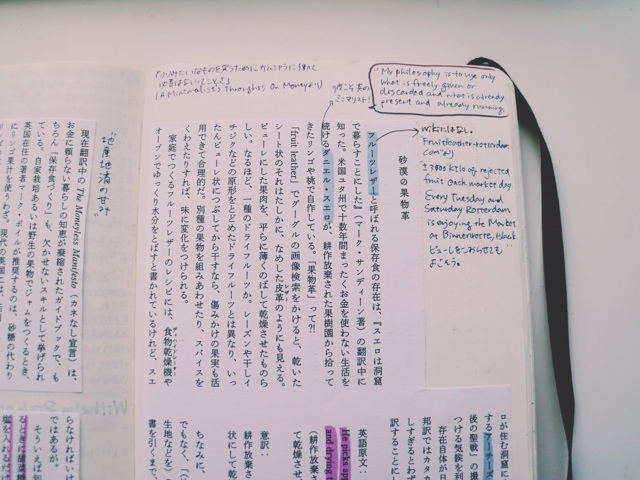 (A Minimalist's Thoughts On Moneyより)
"My philosophy is to use only
what is freely given or
discarded and what is already
present and already running.
wikiにはない。
Fruitleather-rotterdam.
comより
kilo of rejected
fruit each market day.
Every Tuesday and
Saturday Rotterdam
is enjoying the Market
on Binnenrotte, black
砂漠の果物革
フルーツレザーと呼ばれる保存食の存在は、『スエロは洞窟
で暮らすことにした』(マーク・サンディーン著)の翻訳中に
知った。米国ユタ州で十数年間まったくお金を使わない生活を
続けるダニエル・スエロが、耕作放棄された果樹園から拾って
きたリンゴや桃で自作している。「果物革」って?!
「fruit leather」でグーグルの画像検索をかけると、乾いた
シート状のそれはたしかに、なめした皮革のようにも見える。
ピューレにした果肉を、平らに薄くのばして乾燥させたものら
しい。なるほど、一種のドライフルーツか。レーズンや干しイ
チジクなどの原形をとどめたドライフルーツとは異なり、いっ
たんピューレ状につぶしてから干すなら、傷みかけの果実も活
用できて合理的だ。別種の果物を組みあわせたり、スパイスを
くわえたりすれば、味に変化をつけられる。
家庭でつくるフルーツレザーのレシピには、食物乾燥機や
オーブンでゆっくり水分をとばすと書かれているけれど、スエ
ロが住む洞窟に
するアーチーズ
後の聖戦』の撮
つける気候を利
存在自体が日
邦訳ではカタカ
しすぎるとわず
訳することにし
英語原文:
He picks app
and drying t
(耕作放棄さ
て乾燥させ、
意訳:
(耕作放棄さ
状にして乾
ちなみに、
でもなく、「(
生地などを)
書を引くまで、
"地産地消の甘み"
現在翻訳中の The Moneyless Manifesto(カネなし宣言)は、
お金に頼らない暮らしの知恵が凝縮されたガイドブックで、も
ちろん「保存食づくり」も、欠かせないスキルとして挙げられ
ている。自家栽培あるいは野生の果物でジャムをつくるとき、
英国在住の著者マーク・ボイルが推奨するのは、砂糖の代わり
にリンゴ果汁を使うわざ。現代の英国では、
らなければいけ
ではあるが。
そういえば知
るときに甜菜糖
塩を入れるだけ